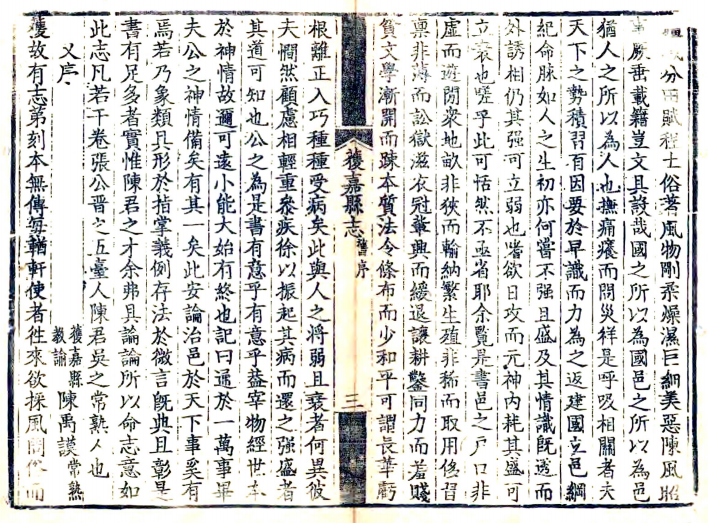 分田賦程土俗著風物剛柔燥濕巨細美惡陳風昭
厥垂載籍豈文具設哉國之所以為國邑之所以為邑
猶人之所以為人也撫痛癢而問災祥是呼吸相關者夫
天下之勢積習百因要於早識而力為之返建國立邑綱
紀命脉如人之生初亦何嘗不强且盛及其情識既遂而
外誘相仍其强可立弱也嗜欲日攻而元神內耗其盛可
立衰也嗟乎此可恬然不亟省耶余覽是書邑之戶口非
虛而遊閒衆地畝非狹而輸納繁生殖非稀而取用侈習
禀非薄而訟獄滋衣冠華興而緩退讓耕鑿同力而羞賤
貧文學漸開而踈本質法令條布而少和平可謂長華虧
獲嘉縣志 舊序 三
根離正入巧種種受病矣此與人之將弱且衰者何異彼
夫憪然顧慮相輕重叅疾徐以振起其病而還之强盛者
其道可知也公之為是書有意乎有意乎葢宰物經世本
於神情故邇可遠小能大始有終也記曰通於一萬事畢
夫公之神情備矣有其一矣此安論治邑於天下事奚有
焉若乃象類具形於指掌義例存法於微言既典且彰是
書有足多者實惟陳君之才余弗具論論所以命志意如
此志凡若干卷張公晋之五臺人陳君吳之常熟人也
又序
獲嘉縣教諭陳禹謨常熟
獲故有志弟刻本無傳每輶軒使者徃來欲採風問俗而